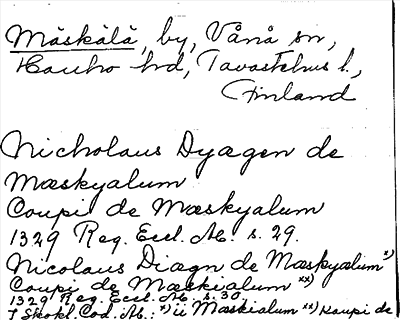 Mäskälä, by, Vånå sn,
Hauho hd, Tavastehus l.,
Finland
Nicholaus Dyægen de
Mæskyalum
Coupi de Mæskyalum
1329 Reg. Eccl. Ab. s. 29.
Nicolaus Diægn de Mæskyælum x)
Coupi de Mæskialum xx)
1329 Reg. Eccl. Ab. s. 30
I Skokl. Cod. Ab.: x) ii Mæskialum xx) Koupi de